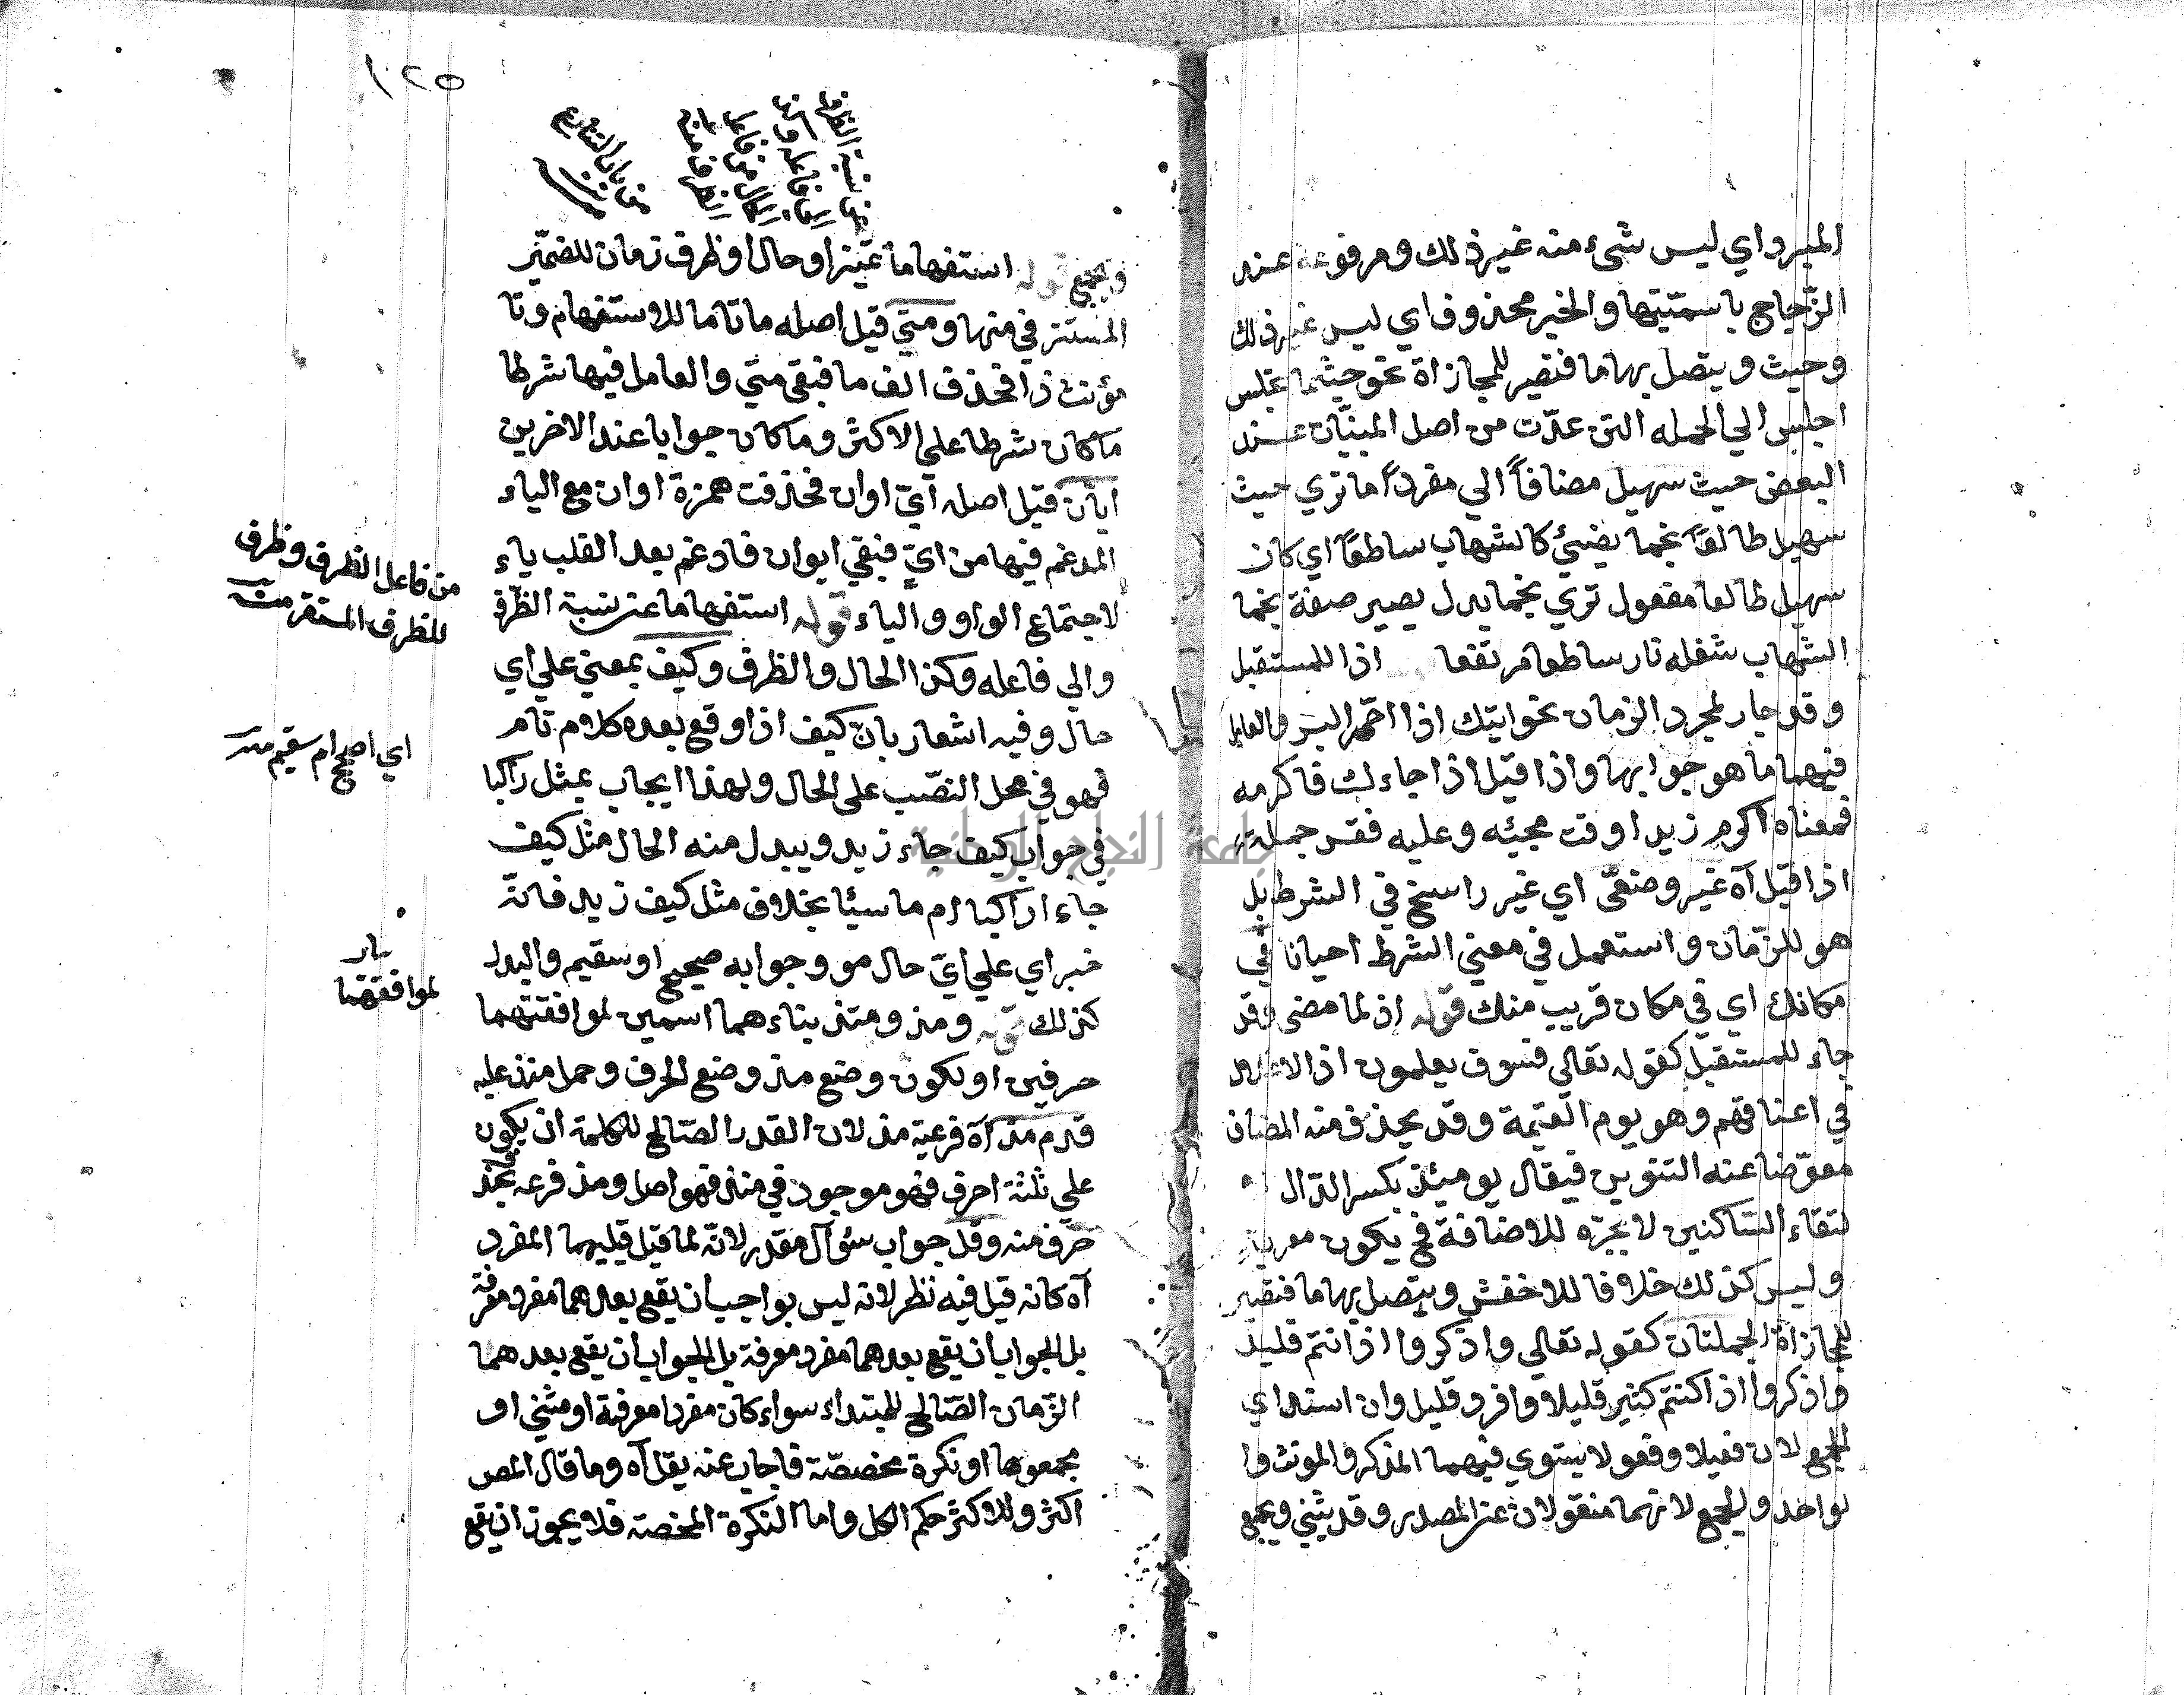 المبرد اي ليس شيء منه غير ذلك ومرفوعة عند
الزّجاج باسميّتها والخبر محذوف اي ليس غير ذلك
وحيث ويتصل بها ما فتصير للمجازاة نحو حيثما تجلس
اجلس الي الجمله التي عدّت من اصل المبنيّات عند
البعض حيث سهيل مضافاً الي مفرد اما تري حيث
سهيل طالعًا نجما يضيئ كالشهاب ساطعًا اي كان
سهيل طالعا مفعول تري نجما بدل يصير صفة نجما
الشهاب شعله نار ساطعا مرتفعا اذا للمستقبل
وقد جاء لمجرد الزمان نحو ايتك اذا احمّر البسر والعامل
فيهما ما هو جوابها واذا قيل اذا جاءك فاكرمه
فمعناه اكرم زيدا وقت مجيئه وعليه فقس جملة
اذا قيل آه غير وضعيّ اي غير راسخ في الشرط بل
هو للزّمان واستعمل في معني الشرط احيانا في
مكانك اي في مكان قريب منك قوله اذ لما مضي وقد
جاء للمستقبل كقوله تعالي فسوف يعلمون اذ الاغلال
في اعناقهم وهو يوم القيمة وقد يحذف منه المضاف
معوّضا عنه التنوين فيقال يومئذ بكسر الذّال
لتقاء الساكنين لا بجرّه للاضافة في يكون معربة
وليس كذلك خلافا للاخفش ويتصل بها ما فتصير
للمجازاة الجملتان كقوله تعالي واذكروا اذ انتم قليل
واذكروا اذ كنتم كثير قليلا وافرد قليل وان اسند اي
الجمع لان فعيلا وفعولا يستوي فيهما المذكر والمونث وا
لواحد والجمع لانهما منقولان عن المصدر وقد يثني ويجمع
١٢٥
ويجمع قوله استفهاما تميّز او حال او ظرف زمان للضمّير
المستتر في منها ومتي قيل اصله ما تا ما للاستفهام وتا
مؤنث ذا فحذف الف ما فبقي متي والعامل فيها شرطا
ما كان شرطا علي الاكثر وما كان جوابا عند الاخرين
ايّان قيل اصله ايّ اوان فحذفت همزة اوان مع الياء
المدغم فيها من ايّ فبقي ايوان فادغم بعد القلب ياء
لاجتماع الواو والياء قوله استفهاما عن نسبة الظّرف
والي فاعله وكذا الحال والظرف وكيف بمعني علي اي
حال وفيه اشعار بان كيف اذا وقع بعده كلام تام
فهو في محل النصّب علي الحال ولهذا ايجاب بمثل راكبا
في جواب كيف جاء زيد ويبدل منه الحال مثل كيف
جاء اراكبا ام ماسيئا بخلاف مثل كيف زيد فانّه
خبر اي علي ايّ حال هو وجوابه صحيح او سقيم والبدل
كذلك قوله ومذ ومنذ بناءهما اسمين لموافقتهما
حرفين او لكون وضع مذ وضع الحرف وحمل منذ عليه
قدم مذ آه فرعية مذ لان القدر الصّالح للكلمة ان يكون
علي ثلثة احرف فهو موجود في منذ فهو اصل ومذ فرعه
حرف منه وقد جواب سئوال مقدر لانّه لما قيل فيليهما المفرد
آه كانه قيل فيه نظر لانه ليس بواجب ان يقع بعدهما مفرد معرفة
بل الجواب ان يقع بعدهما مفرد معرفة بل الجواب ان يقع بعدهما
الزّمان الصّالح للمبتداء سواء كان مفردا معرفة او مثني او
مجموعا او نكرة مخصصّة فاجاب عنه بقل آه وما قال المص
اكثر وللاكثر حكم الكل واما النكرة المخصة فلا يجوز ان يقع
من فاعل الظرف وظرف
للظرف المستقر منه
اي اصحيح ام سقيم منه
لموافقتهما